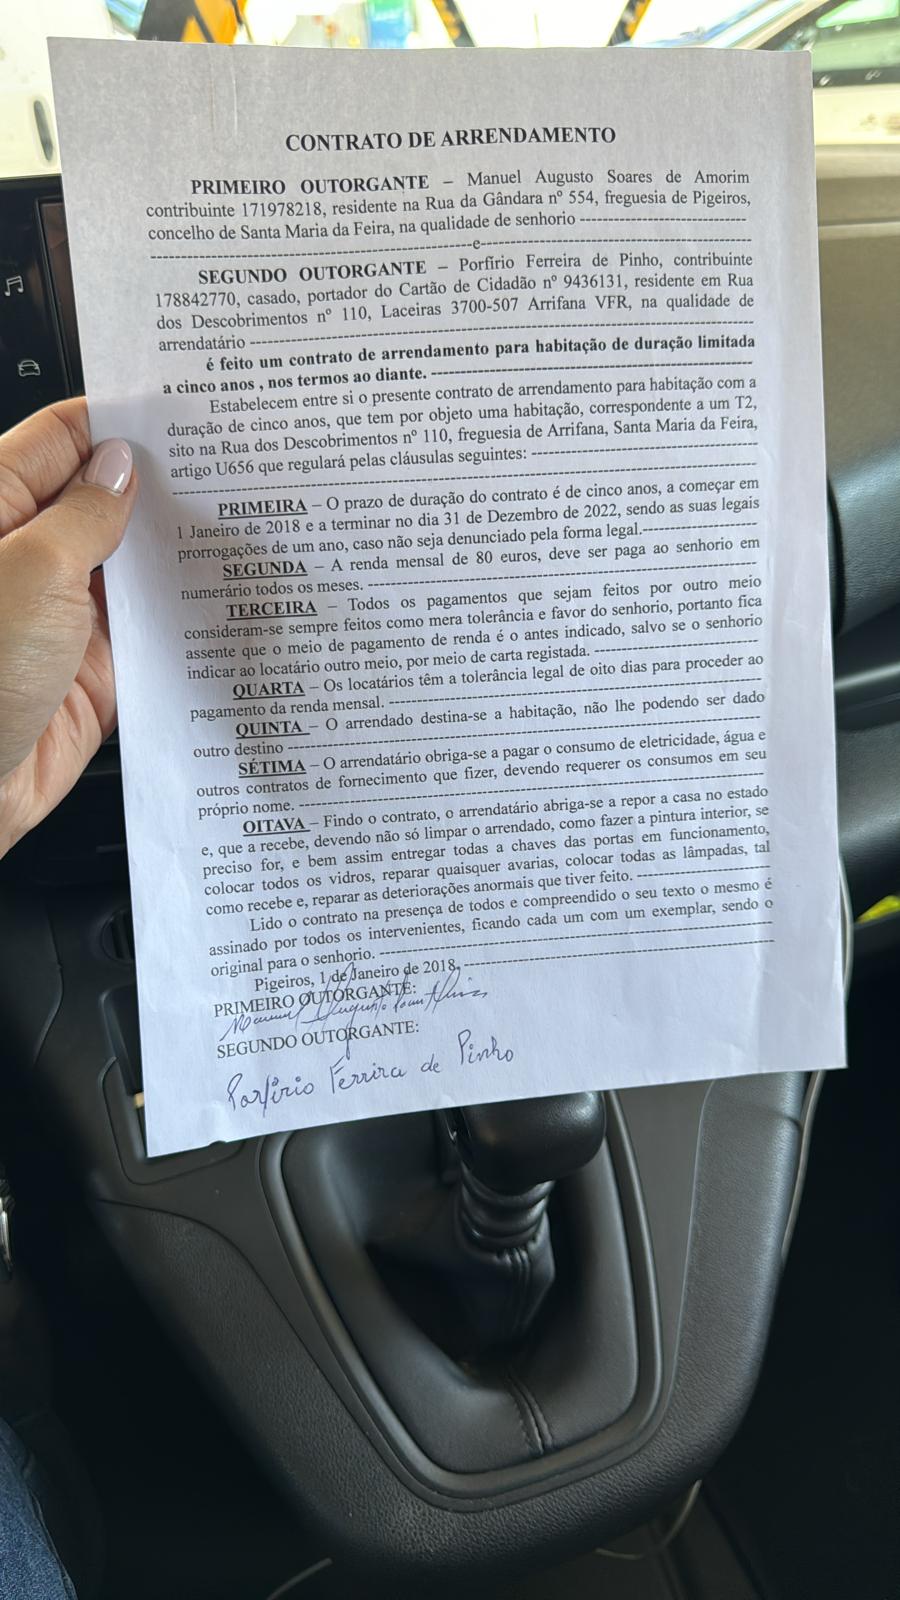 CONTRATO DE ARRENDAMENTO
PRIMEIRO OUTORGANTE – Manuel Augusto Soares de Amorim
contribuinte 171978218, residente na Rua da Gândara nº 554, freguesia de Pigeiros,
concelho de Santa Maria da Feira, na qualidade de senhorio ------------------------------
----------------------------------------------------------e------------------------------------------------
SEGUNDO OUTORGANTE – Porfírio Ferreira de Pinho, contribuinte
178842770, casado, portador do Cartão de Cidadão nº 9436131, residente em Rua
dos Descobrimentos nº 110, Laceiras 3700-507 Arrifana VFR, na qualidade de
arrendatário ------------------------------------------------------------------------------------------
é feito um contrato de arrendamento para habitação de duração limitada
a cinco anos , nos termos ao diante. ----------------------------------------------------------
Estabelecem entre si o presente contrato de arrendamento para habitação com a
duração de cinco anos, que tem por objeto uma habitação, correspondente a um T2,
sito na Rua dos Descobrimentos nº 110, freguesia de Arrifana, Santa Maria da Feira,
artigo U656 que regulará pelas cláusulas seguintes: ----------------------------------------
------------------------------------------------------------------------------------------------------------
PRIMEIRA – O prazo de duração do contrato é de cinco anos, a começar em
1 Janeiro de 2018 e a terminar no dia 31 de Dezembro de 2022, sendo as suas legais
prorrogações de um ano, caso não seja denunciado pela forma legal.---------------------
SEGUNDA – A renda mensal de 80 euros, deve ser paga ao senhorio em
numerário todos os meses. ----------------------------------------------------------------------
TERCEIRA – Todos os pagamentos que sejam feitos por outro meio
consideram-se sempre feitos como mera tolerância e favor do senhorio, portanto fica
assente que o meio de pagamento de renda é o antes indicado, salvo se o senhorio
indicar ao locatário outro meio, por meio de carta registada. -----------------------------
QUARTA – Os locatários têm a tolerância legal de oito dias para proceder ao
pagamento da renda mensal. --------------------------------------------------------------------
QUINTA – O arrendado destina-se a habitação, não lhe podendo ser dado
outro destino ------------------------------------------------------------------------------------
SÉTIMA – O arrendatário obriga-se a pagar o consumo de eletricidade, água e
outros contratos de fornecimento que fizer, devendo requerer os consumos em seu
próprio nome. -----------------------------------------------------------------------------------
OITAVA – Findo o contrato, o arrendatário abriga-se a repor a casa no estado
e, que a recebe, devendo não só limpar o arrendado, como fazer a pintura interior, se
preciso for, e bem assim entregar todas a chaves das portas em funcionamento,
colocar todos os vidros, reparar quaisquer avarias, colocar todas as lâmpadas, tal
como recebe e, reparar as deteriorações anormais que tiver feito. -----------------------
Lido o contrato na presença de todos e compreendido o seu texto o mesmo é
assinado por todos os intervenientes, ficando cada um com um exemplar, sendo o
original para o senhorio. -----------------------------------------------------------------------
Pigeiros, 1 de Janeiro de 2018,-----------------------------------------------------------
PRIMEIRO OUTORGANTE:
Manuel Augusto
SEGUNDO OUTORGANTE:
Porfírio Ferrira de Pinho